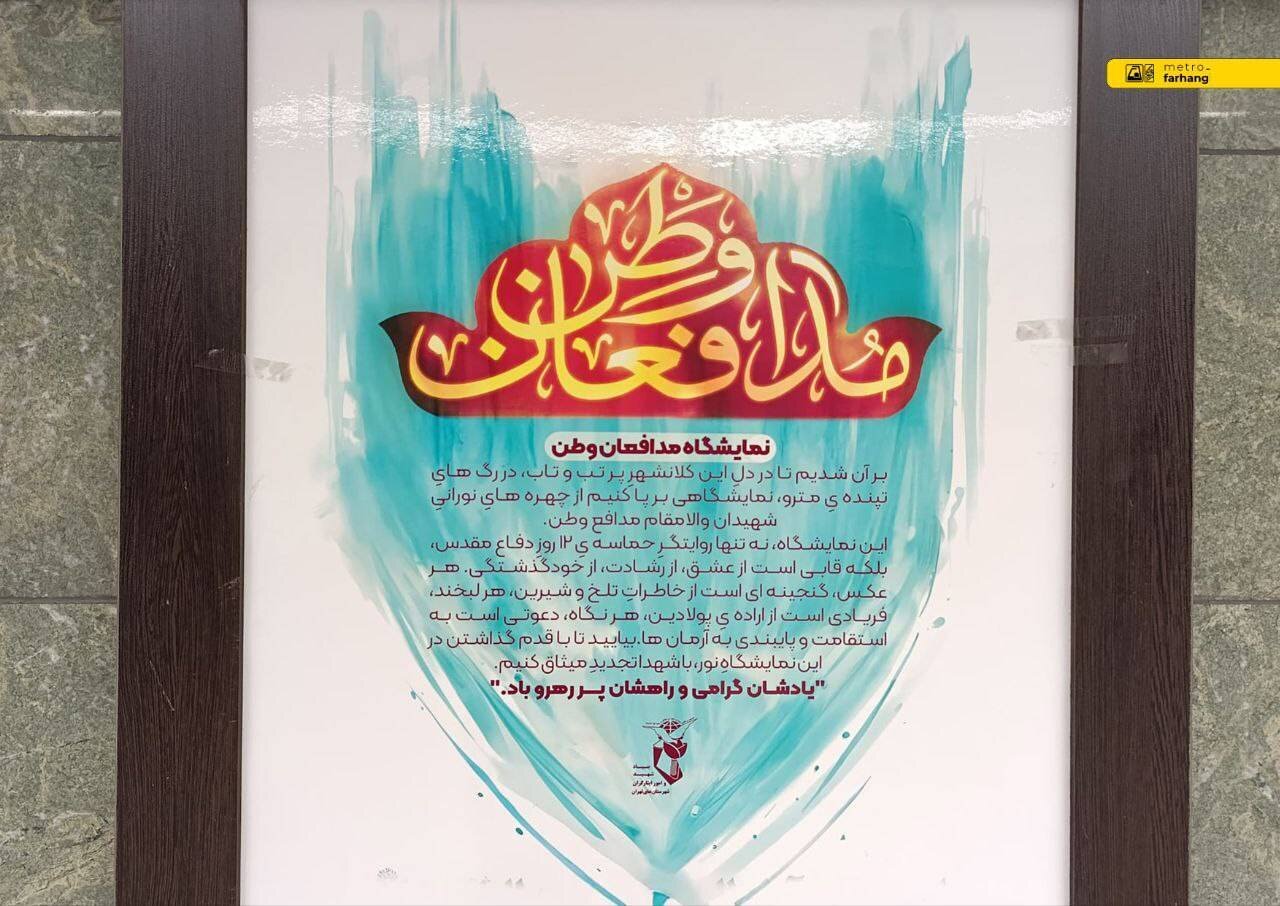 metro-
farhang
مدافعان وطن
نمایشگاه مدافعان وطن
بر آن شدیم تا در دلِ این کلانشهرِ پر تب و تاب، در رگ هایِ
تپنده یِ مترو، نمایشگاهی بر پا کنیم از چهره هایِ نورانیِ
شهیدان والامقام مدافع وطن.
این نمایشگاه، نه تنها روایتگرِ حماسه یِ ۱۲ روزِ دفاع مقدس،
بلکه قابی است از عشق، از رشادت، از خودگذشتگی. هر
عکس، گنجینه ای است از خاطراتِ تلخ و شیرین، هر لبخند،
فریادی است از اراده یِ پولادین، هر نگاه، دعوتی است به
استقامت و پایبندی به آرمان ها.بیایید تا با قدم گذاشتن در
این نمایشگاهِ نور، با شهدا تجدیدِ میثاق کنیم.
"یادشان گرامی و راهشان پر رهرو باد."
بنیاد
شهید
و امور ایثارگران
شهرستان‌های تهران